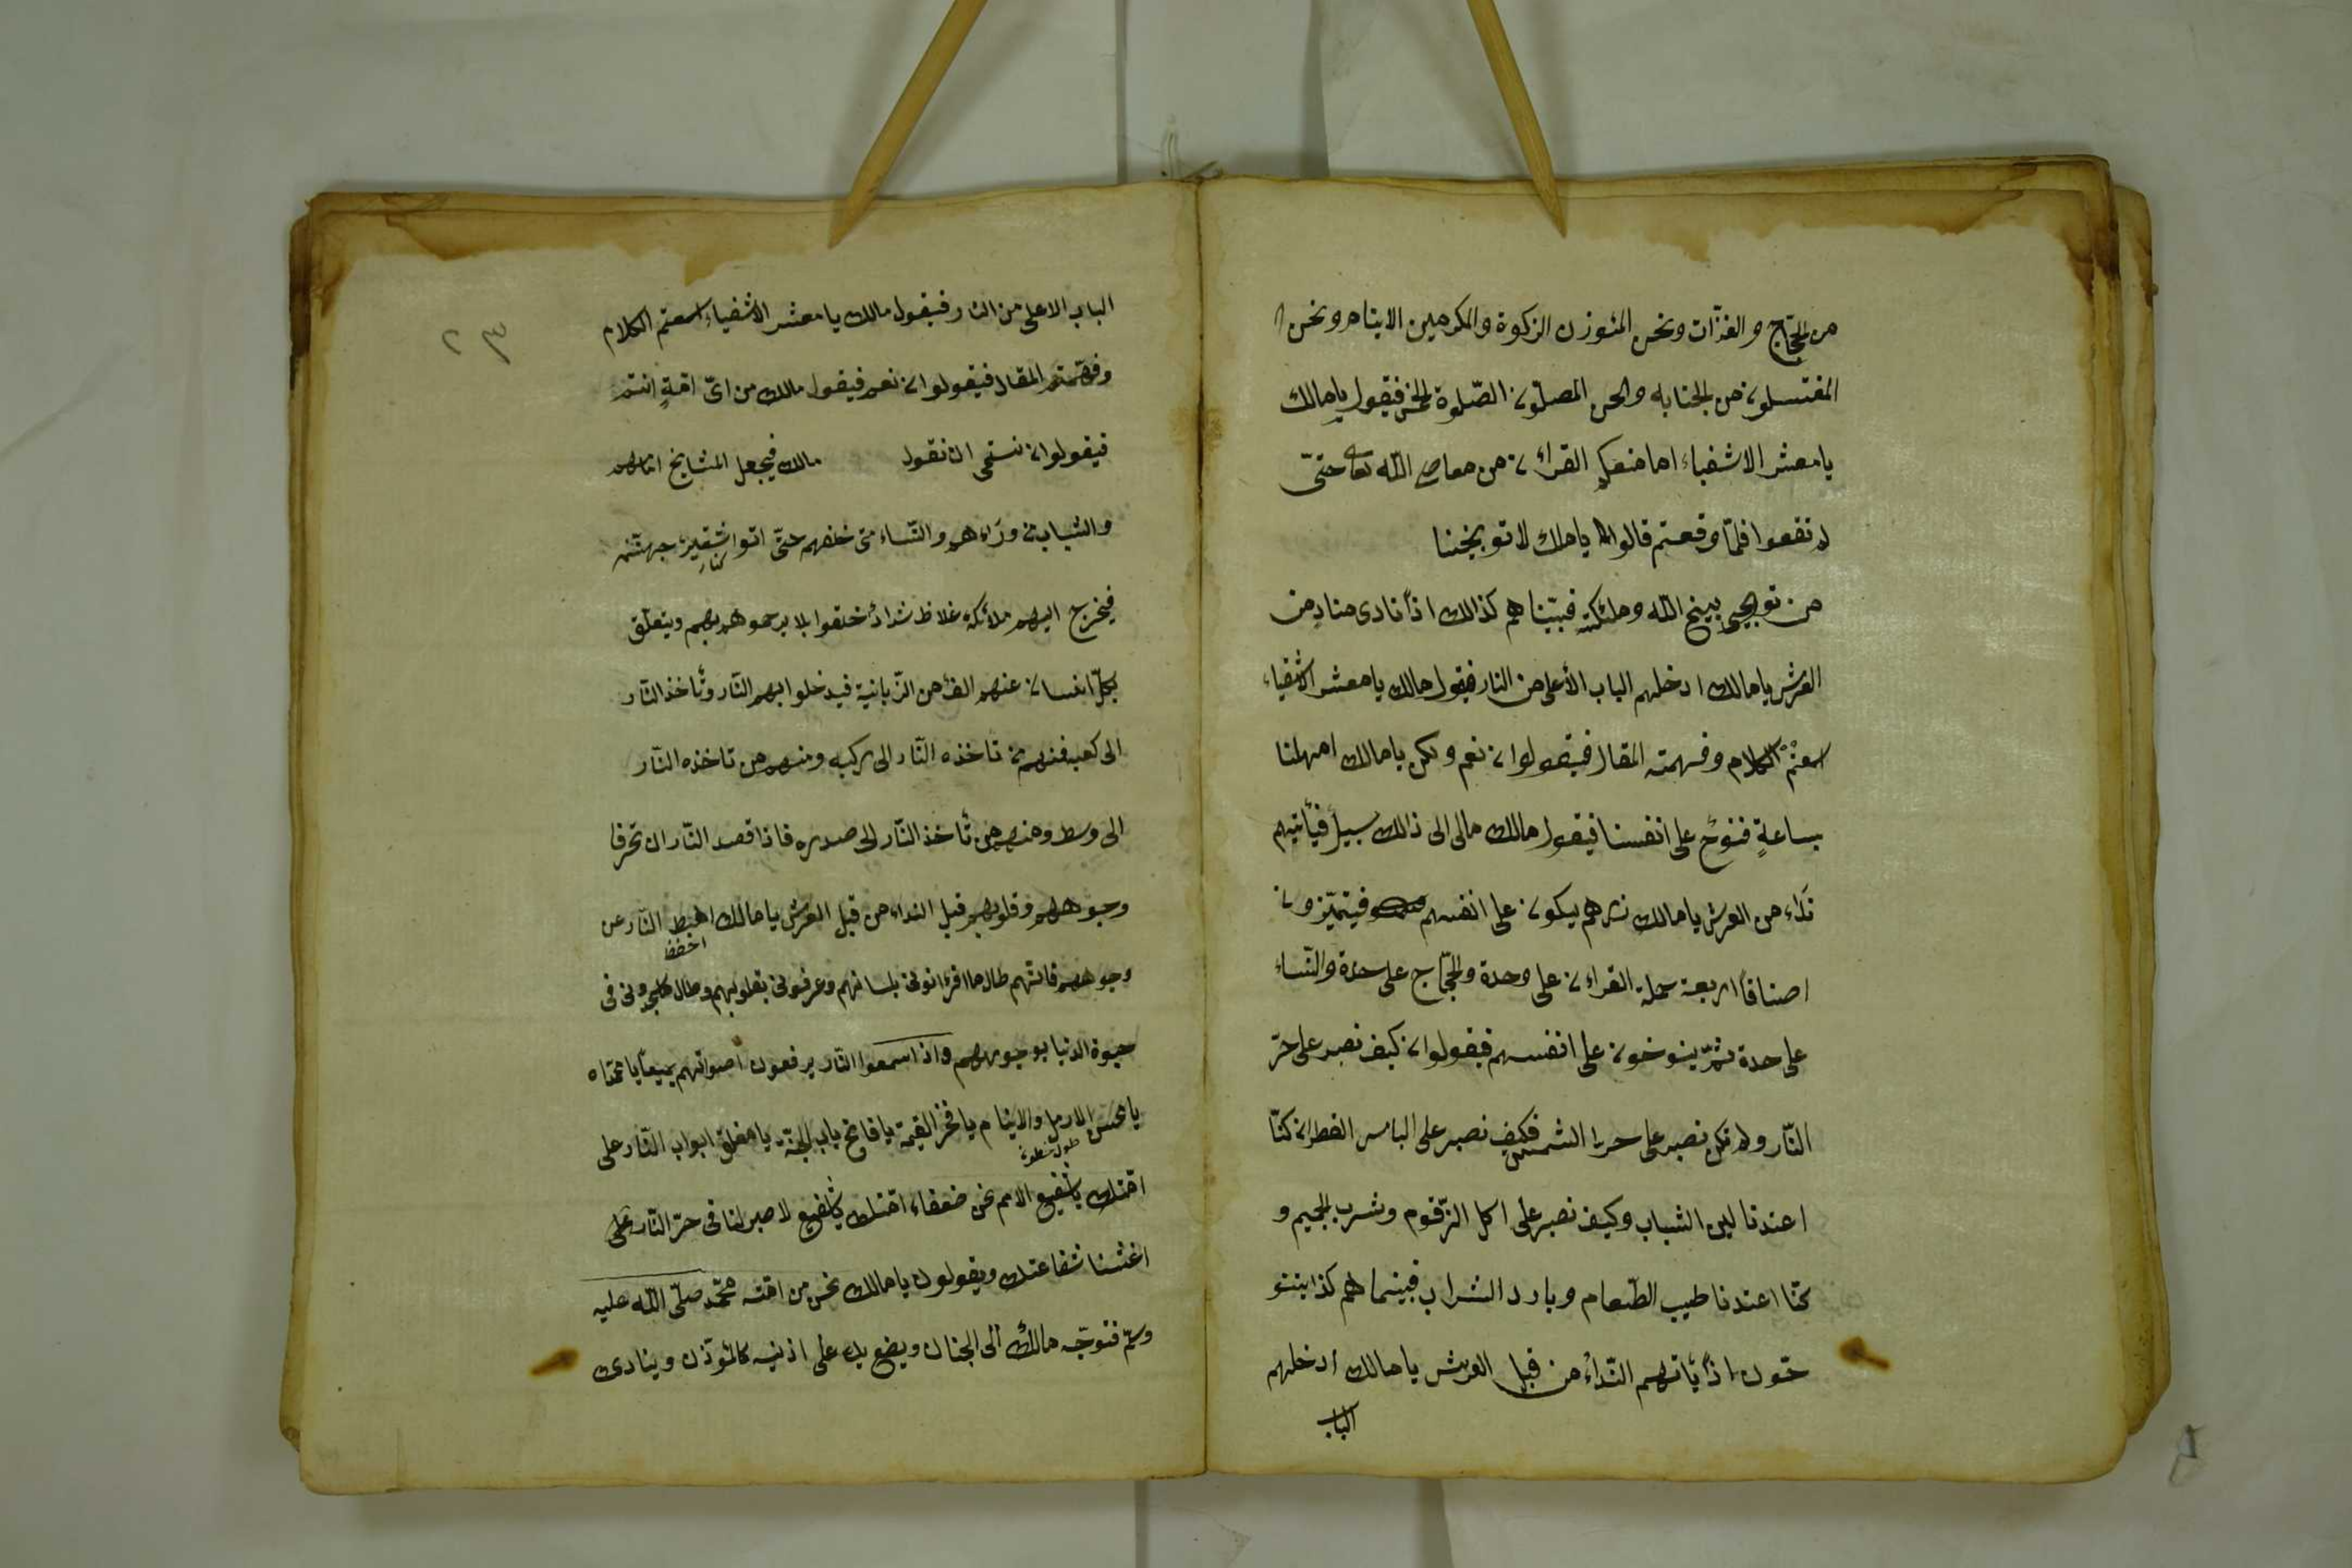 من الحجّاج والغزّات ونحن المئوزن الزكوة والمكرمين الايتام ونحن
المغتسلون من الجنابه ونحن المصلّون الصّلوة الخمس فيقول يا مالك
يا معشر الاشقياء اما منعكم القرائن من معاصى اللّه تعا حتّى
لا تقعوا فلمّا وقعتم قالوا يا مالك لا توبيخنا
من توبيخى بينخ اللّه وملئكته فبيّناهم كذالك اذاً نادى منادٍ من
العرش يا مالك ادخلهم الباب الأعلى من النار فيقول مالك يا معشر الاشقياء
اسعتمْ الكلام وفهمته المقال فيقولوان نعم ولكن يا مالك امهلنا
بساعةٍ فننوح على انفسنا فيقول مالك مالى الى ذالك سبيلٌ فيأتيهم
نداء من العرش يا مالك نرهم يبكون على انفسهم فيتميّزون
اصنافاً اربعة حملة القراءن على وحدة والحجّاج على حدة والنّساء
على حدة ثمّ ينوخون على انفسهم فيقولوان كيف نصبر على حرّ
النّار ولم نكن نصبر على حرا الشمس فكيف نصبر على الباس القطران كنّا
اعندنا لين الشباب وكيف نصبر على اكل الزّقوم وشرب الحميم و
كنّا اعندنا طيب الطّعام وبارد الشراب فبينما هم كذا ينو
حون اذاً يأتهم النّداءُ من قبل العرش يا مالك ادخلهم
الباب
٢٣
الباب الاعلى من النار فيقول مالك يا معشر الاشقياء اسعتم الكلام
وفهّمتم المقال فيقولوان نعم فيقول مالك من اىّ امّةٍ انتم
فيقولوان نستحى ان نقول مالك فيجعل المشايخ امامهم
والشباب من ورَاءهم والنّساء من خلفهم حتّى اتوا شقير جهنّم
كنار
فيخرج اليهم ملائكة غلاظ شدادٌ خلقوا بلا يرحموهم بهم ويتعلّق
بكلّ انسان عنهم الف من الزّبانية فيدخلوا بهم النّار وتأخذ النّار
الى كعبه فمنهم من تاخذه النّار الى ركبه ومنهم من تاخذه النّار
الى وسط ومنهم من تأخذ النّار الى صدره فاذا قصد النّار ان تحرقا
وجوههم وقلوبهم قبل النداء من قبل العرش يا مالك اهبط النّار عن
اخفظ
وجوههم فانّهم طال ما اقرءانونى بلسانهم وعرفونى بقلوبهم وطال فى
حيوة الدنيا بوجوههم واذا سمعوا النّار يرفعون اصواتهم جميعاً يا محمّداه
يا محسن الارمل والايتام يا فخر القيمة يا فاتح باب الجنّة يا مغلق ابواب النّار على
امّتك يا شفيع الامم نحن ضعفاء امّتك يا شفيع لا صبر لنا فى حرّ النّار على
اغثنا شفاعتك ويقولون يا مالك نحن من امّة محمّد صلّى اللّه عليه
وسلّم فتوجّه مالكٌ الى الجنان ويضع يك على اذنيه كالمؤذّن وينادى